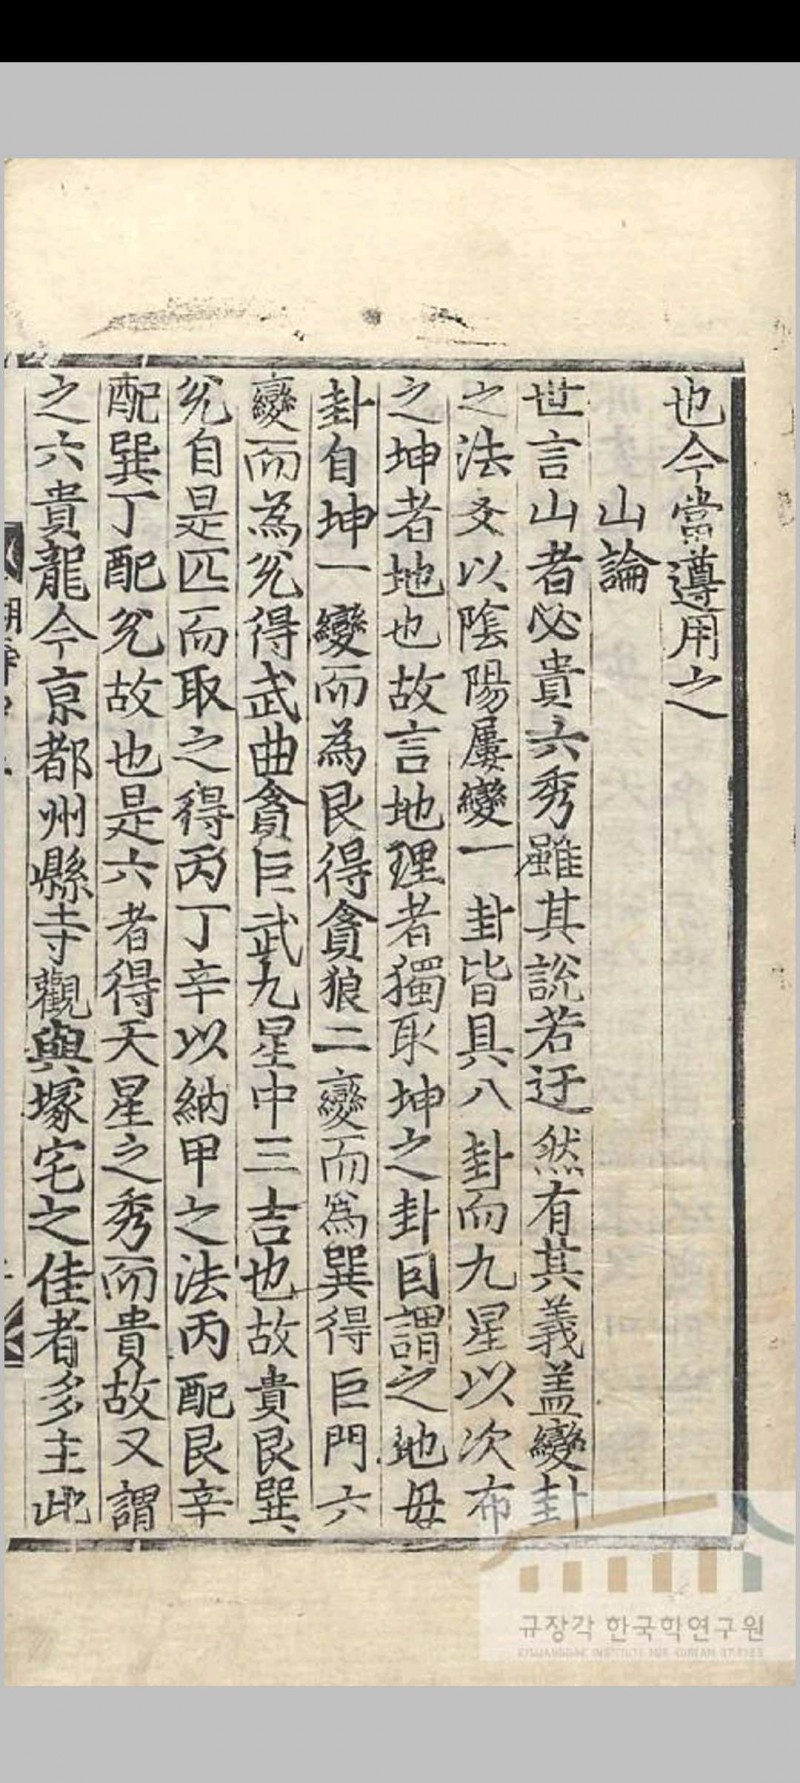 也今當遵用之
山論
世言山者必貴六秀雖其說若迂然有其義盖變卦
之法爻以陰陽屢變一卦皆具八卦而九星以次布
之坤者地也故言地理者獨取坤之卦曰謂之地毋
卦自坤一變而為艮得貪狼二變而爲巽得巨門六
變而為兊得武曲貪巨武九星中三吉也故貴艮巽
兊自是匹而取之得丙丁辛以納甲之法丙配艮辛
配巽丁配兊故也是六者得天星之秀而貴故又謂
之六貴龍今京都州縣寺觀與塚宅之佳者多主此
규장각 한국학연구원
KYUJANGGAK INSTITUTE FOR KOREAN STUDIES